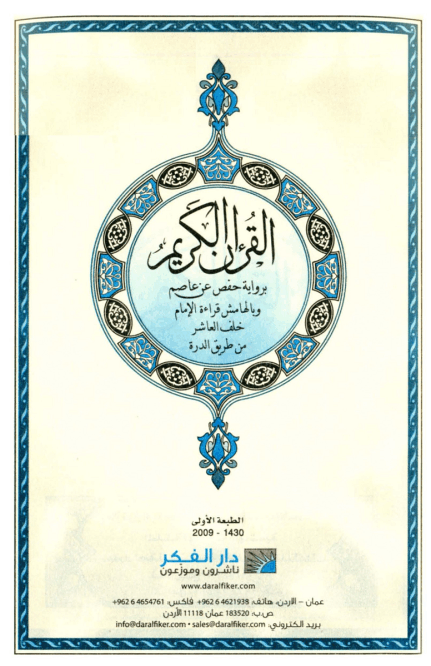 القرءان الكريم
برواية حفص عن عاصم
وبالهامش قراءة الإمام
خلف العاشر
من طريق الدرة
الطبعة الأولى
1430 - 2009
دار الفكر
ناشرون وموزعون
www.daralfiker.com
عمان – الأردن، هاتف: 4621938 6 962+ فاكس: 4654761 6 962+
ص.ب: 183520 عمان 11118 الأردن
بريد الكتروني: info@daralfiker.com • sales@daralfiker.com